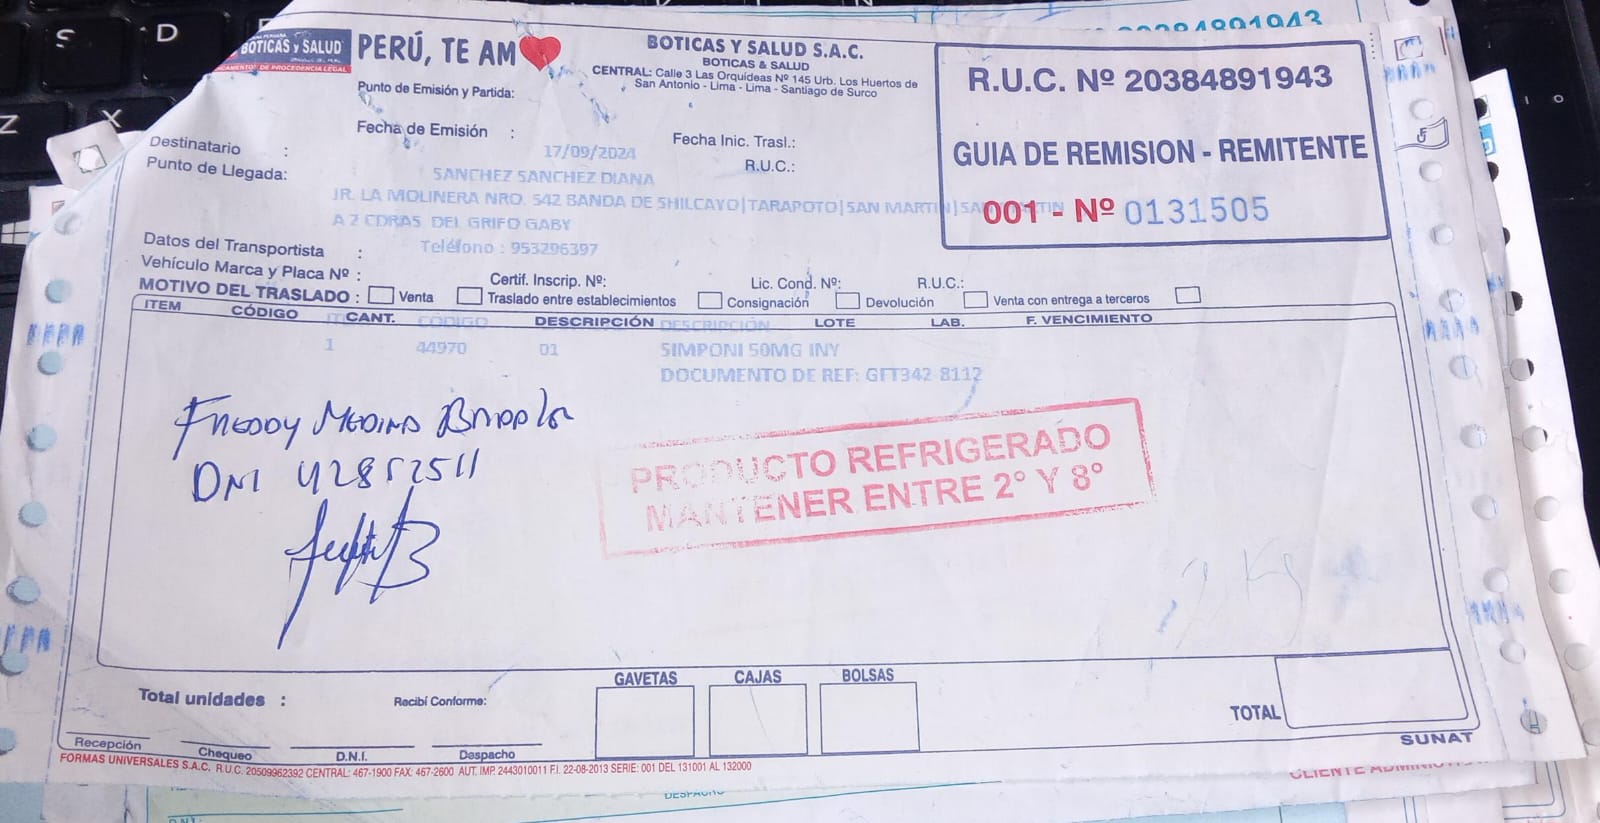 20384891943
BOTICAS Y SALUD
MEDICAMENTOS DE PROCEDENCIA LEGAL
PERÚ, TE AM
BOTICAS Y SALUD S.A.C.
BOTICAS & SALUD
CENTRAL: Calle 3 Las Orquídeas Nº 145 Urb. Los Huertos de
San Antonio - Lima - Lima - Santiago de Surco
R.U.C. Nº 20384891943
GUIA DE REMISION - REMITENTE
001 - Nº 0131505
Punto de Emisión y Partida:
Fecha de Emisión : 17/09/2024
Fecha Inic. Trasl.:
Destinatario : SANCHEZ SANCHEZ DIANA
R.U.C.:
Punto de Llegada: JR. LA MOLINERA NRO. 542 BANDA DE SHILCAYO|TARAPOTO|SAN MARTIN|SAN MARTIN
A 2 CDRAS. DEL GRIFO GABY
Teléfono : 953296397
Datos del Transportista :
Vehículo Marca y Placa Nº :
Certif. Inscrip. Nº:
Lic. Cond. Nº:
R.U.C.:
MOTIVO DEL TRASLADO : Venta Traslado entre establecimientos Consignación Devolución Venta con entrega a terceros
ITEM CÓDIGO CANT. DESCRIPCIÓN LOTE LAB. F. VENCIMIENTO
CÓDIGO DESCRIPCIÓN
1 44970 01 SIMPONI 50MG INY
DOCUMENTO DE REF: GFT342 8112
FREDDY MEDINA
DNI 42852511
PRODUCTO REFRIGERADO
MANTENER ENTRE 2° Y 8°
Total unidades :
Recibí Conforme:
GAVETAS CAJAS BOLSAS
TOTAL
Recepción Chequeo D.N.I. Despacho
SUNAT
FORMAS UNIVERSALES S.A.C. R.U.C. 20509962392 CENTRAL: 467-1900 FAX: 467-2600 AUT. IMP. 2443010011 F.I. 22-08-2013 SERIE: 001 DEL 131001 AL 132000
DESPACHO
D.N.I.: